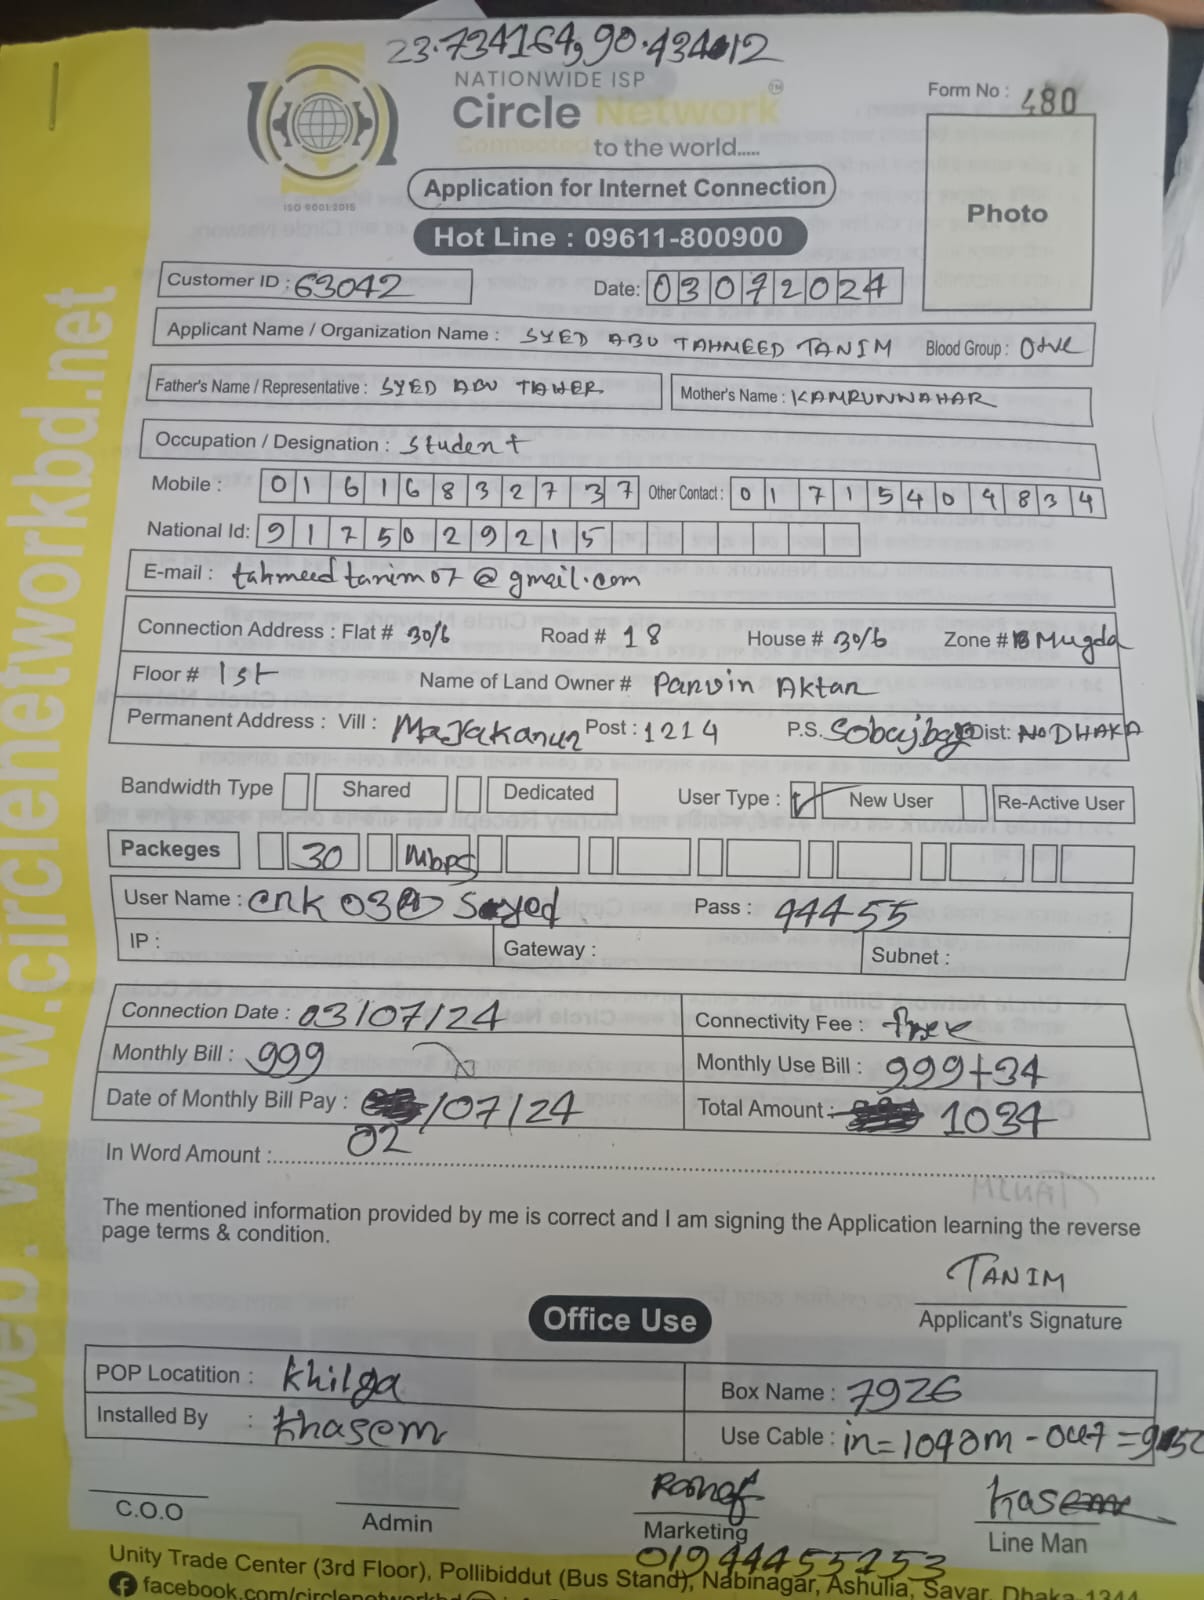 23.734164,90.434012
NATIONWIDE ISP
Circle Network TM
Connected to the world.....
ISO 9001:2015
Form No : 480
Photo
Application for Internet Connection
Hot Line : 09611-800900
Customer ID : 63042 Date: 03072024
Applicant Name / Organization Name : SYED ABU TAHMEED TANIM Blood Group : O+ve
Father's Name / Representative : SYED ABU TAHER Mother's Name : KAMRUNNAHAR
Occupation / Designation : Student
Mobile : 01616832737 Other Contact : 01715404834
National Id: 9175029215
E-mail : tahmeedtanim07@gmail.com
Connection Address : Flat # 30/6 Road # 18 House # 30/6 Zone # Mugda
Floor # 1st Name of Land Owner # Parvin Aktar
Permanent Address : Vill : Post : 1214 P.S. Sobujbag Dist: DHAKA
Bandwidth Type Shared Dedicated User Type : New User Re-Active User
Packeges 30 Mbps
User Name : Pass : 44455
IP : Gateway : Subnet :
Connection Date : 03/07/24 Connectivity Fee : free
Monthly Bill : 999 Monthly Use Bill : 999+34
Date of Monthly Bill Pay : /07/24 Total Amount : 1034
02
In Word Amount :
The mentioned information provided by me is correct and I am signing the Application learning the reverse
page terms & condition.
TANIM
Applicant's Signature
Office Use
POP Locatition : Khilga Box Name : 7926
Installed By : Khasem Use Cable : in=1090m - out=
C.O.O Admin Marketing Line Man
01944455253
Unity Trade Center (3rd Floor), Pollibiddut (Bus Stand), Nabinagar, Ashulia, Savar, Dhaka-1344
web: www.circlenetworkbd.net